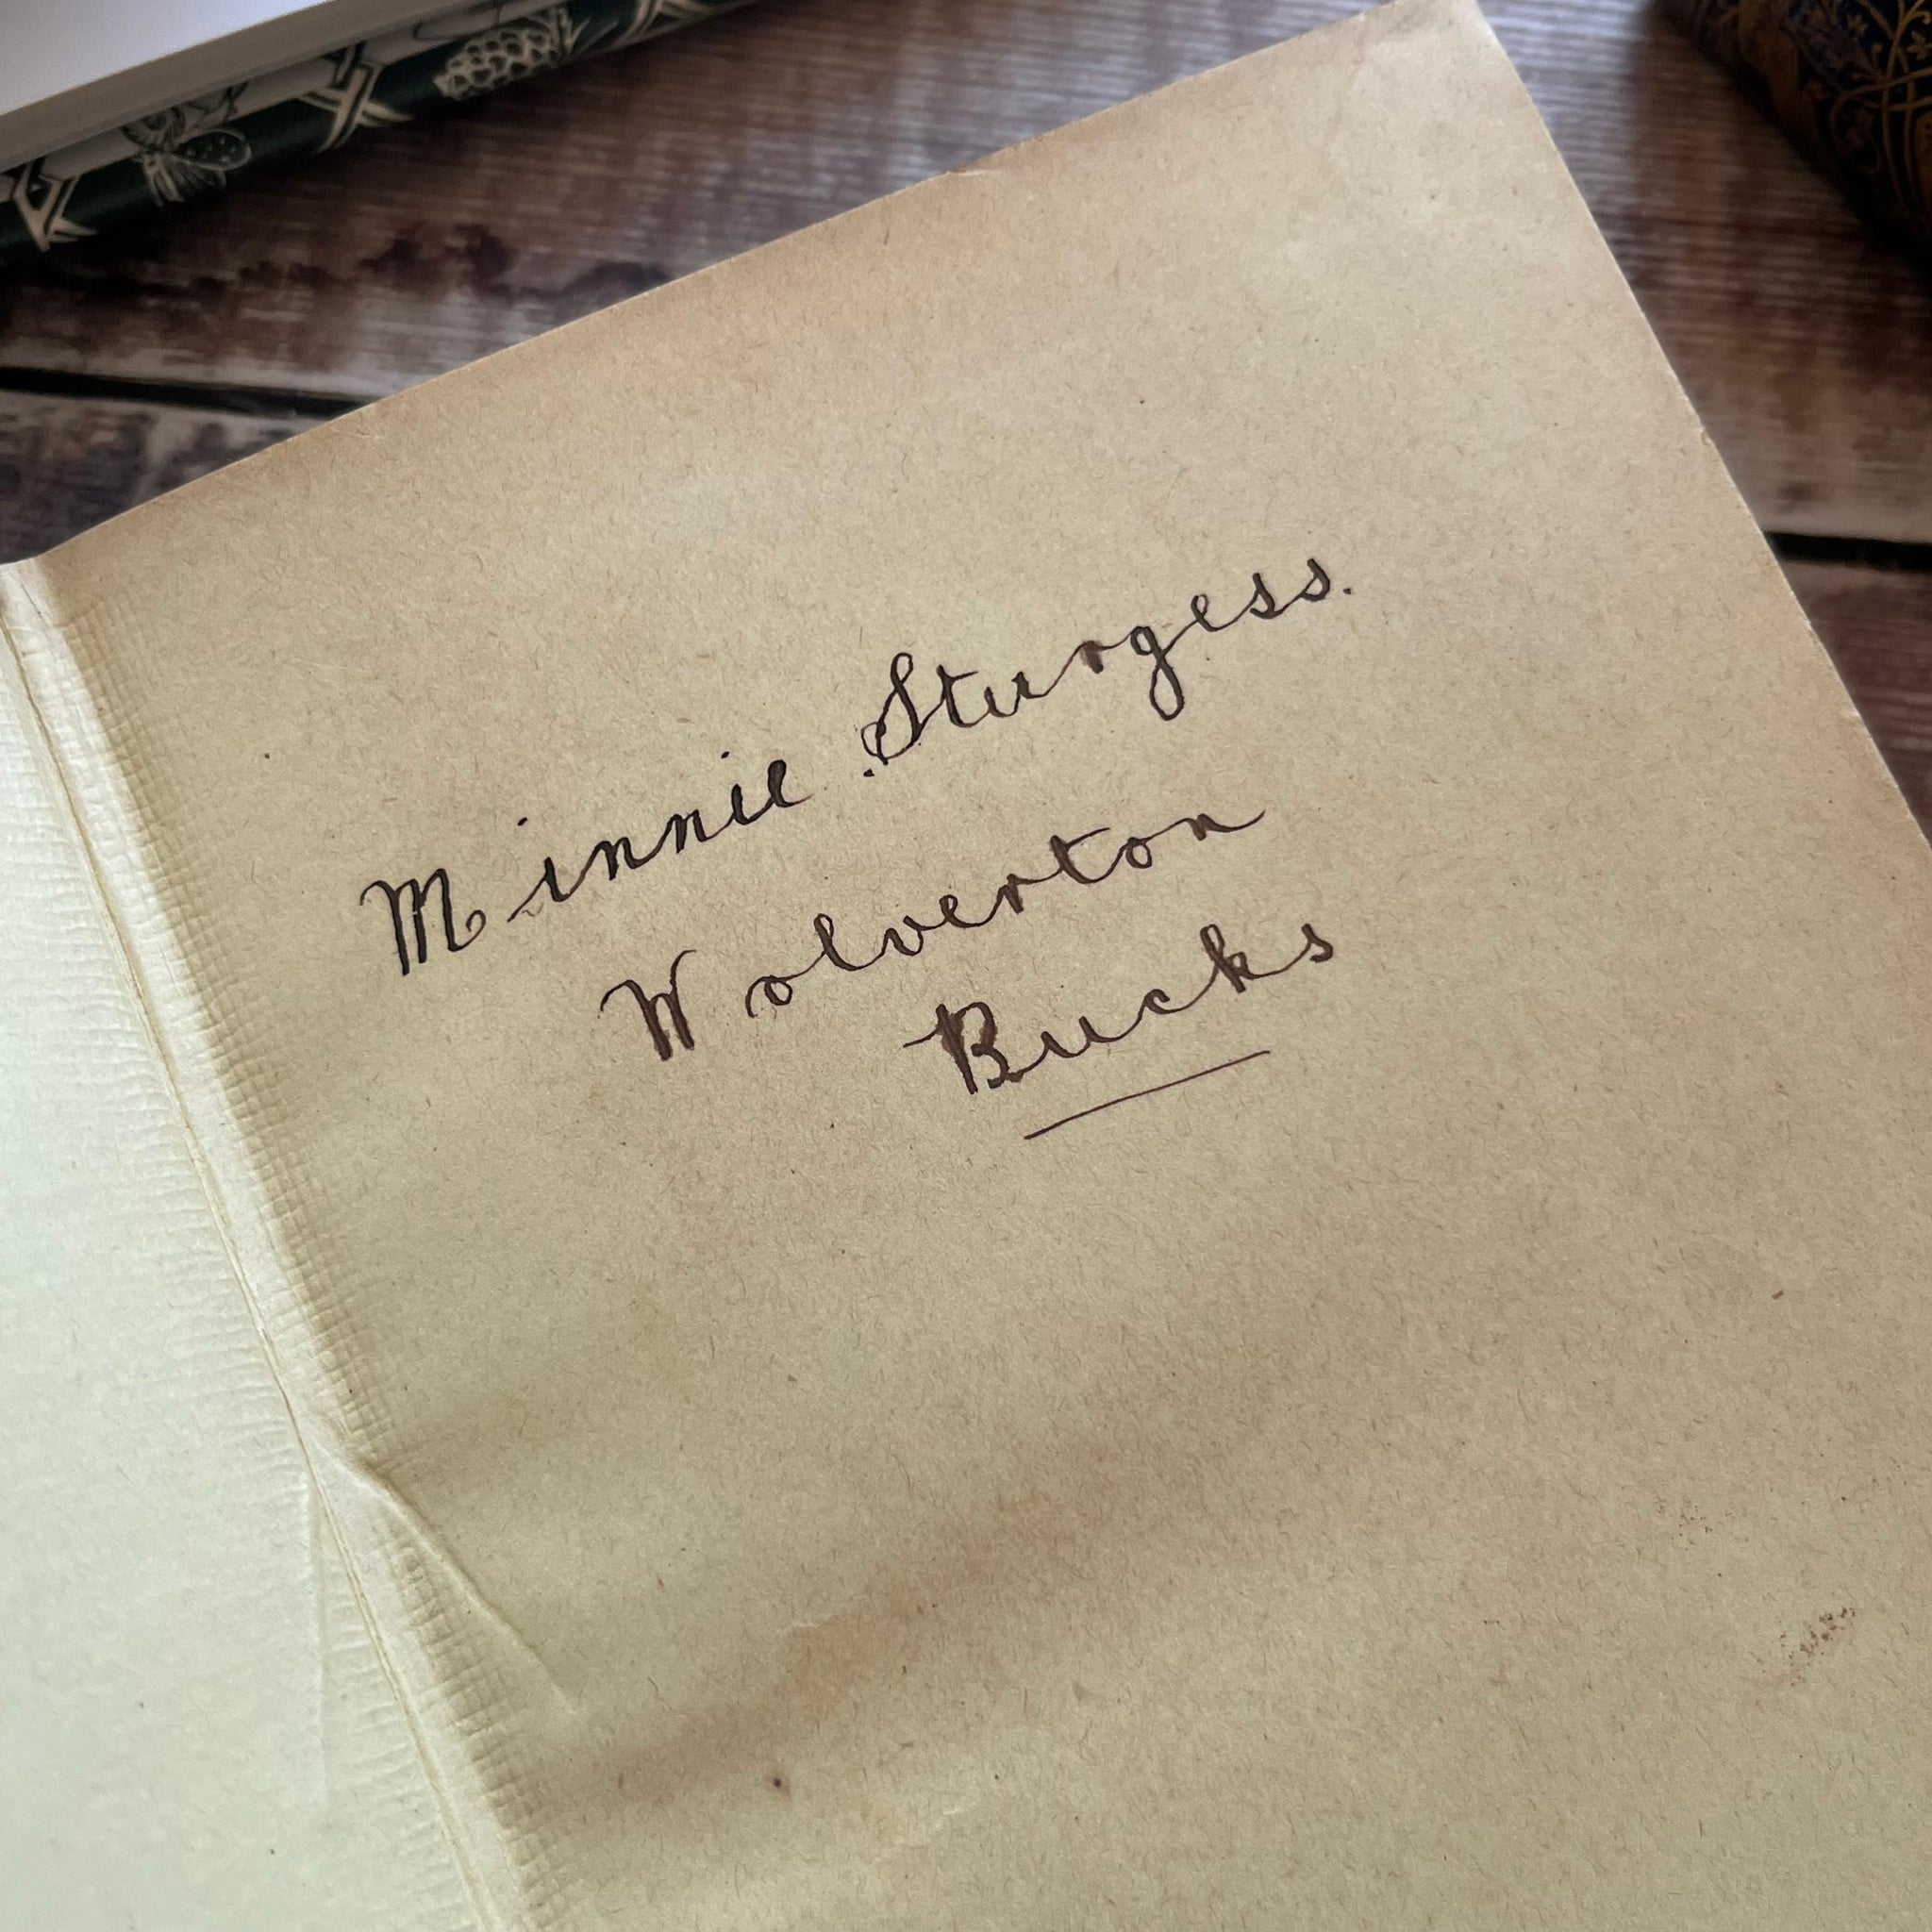 Minnie Sturgess.
Wolverton
Bucks